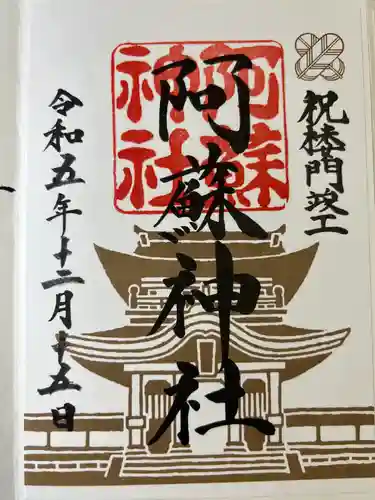 祝楼門竣工
阿蘇神社
阿蘇
神社
令和五年十二月十五日